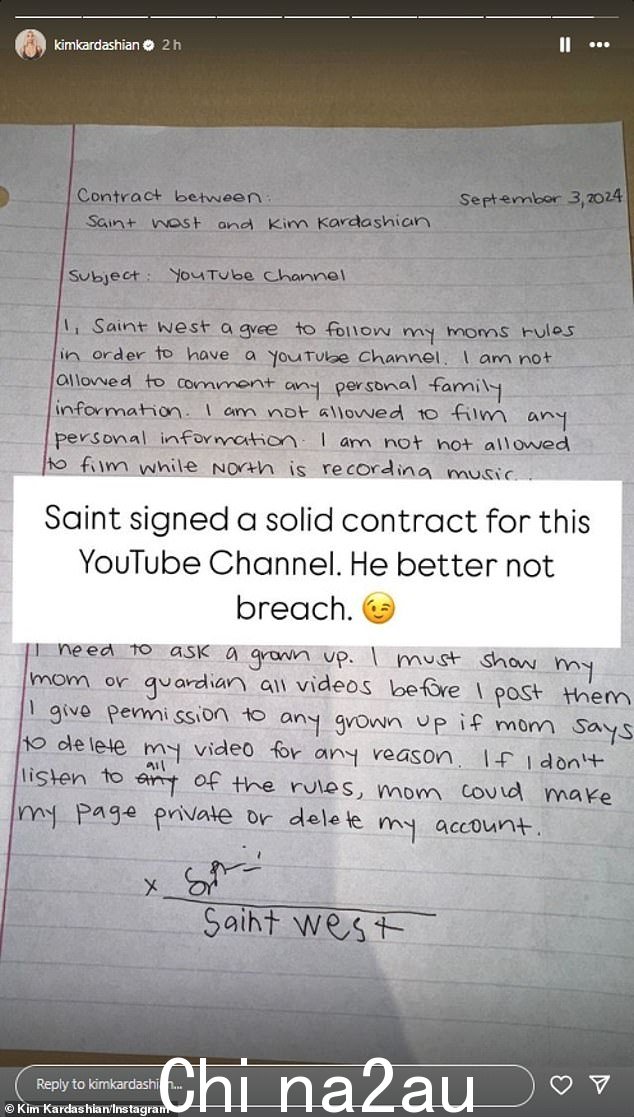 kimkardashian 2 h
Contract between: September 3, 2024
Saint west and Kim Kardashian
Subject: YouTube Channel
I, Saint west agree to follow my moms rules
in order to have a YouTube Channel. I am not
allowed to comment any personal family
information. I am not allowed to film any
personal information. I am not not allowed
to film while North is recording music.
Saint signed a solid contract for this
YouTube Channel. He better not
breach. 😉
I need to ask a grown up. I must show my
mom or guardian all videos before I post them
I give permission to any grown up if mom says
to delete my video for any reason. If I don't
all
listen to any of the rules, mom could make
my page private or delete my account.
x
Saint west
Reply to kimkardashi n...
Chi na2au
© Kim Kardashian/Instagram